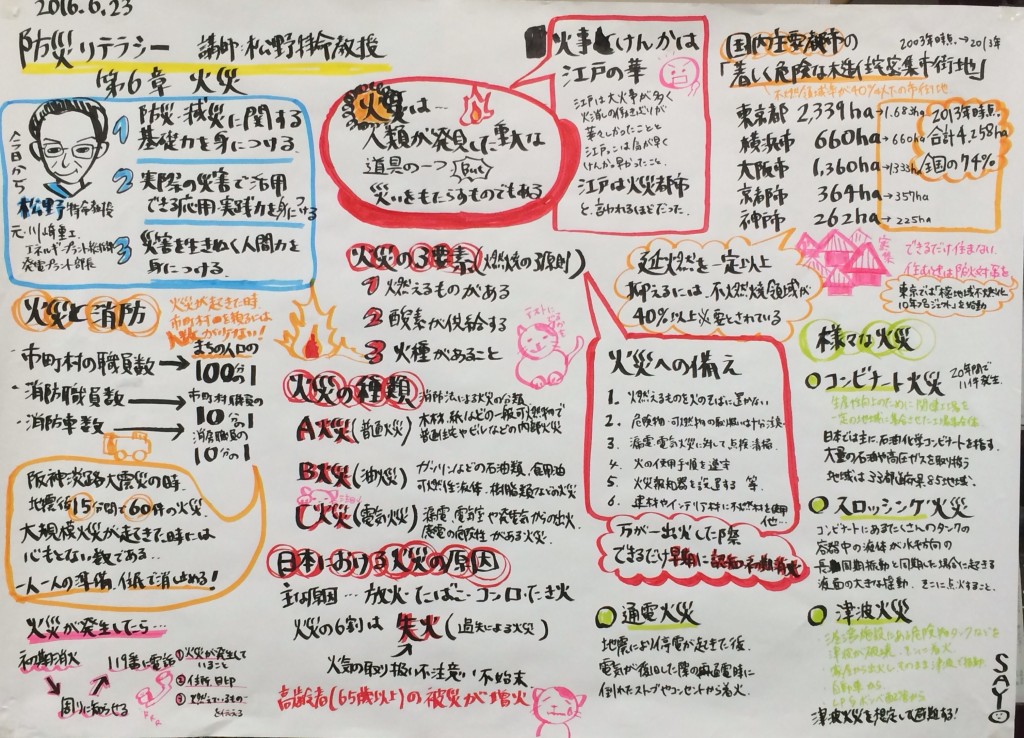 2016.6.23
防災リテラシー 講師:松野特命教授
第6章 火災
今日から
松野特命教授
元・川崎重工
発電プラント部長
1 防災・減災に関する
基礎力を身につける
2 実際の災害で活用
できる応用・実践力を身につける
3 災害を生きぬく人間力を
身につける
火災は…
人類が発見した重大な
道具の一つ but
災いをもたらすものでもある
火事とけんかは
江戸の華
江戸は大火事が多く
火消しの働きぶりが
華々しかったことと
江戸っこは気が早く
けんか早かったこと。
江戸は火災都市
と言われるほどだった。
国内主要都市の 2003年時点→2013年
「著しく危険な木造住宅密集市街地」
東京都 2,339ha→1,683ha
横浜市 660ha→660ha
大阪市 1,360ha→1333ha
京都市 364ha→357ha
神戸市 262ha→225ha
2013年時点
合計4,258ha
全国の74%
できるだけ住まない
延燃を一定以上
抑えるには、不燃焼領域が
40%以上必要とされている
火災と消防
火災が起きた時
市町村の職員数→まちの人口の
100分の1
消防職員数→市町村職員の
10分の1
消防車数→消防職員の
10分の1
阪神淡路大震災の時、
地震後15分間で60件の火災。
大規模火災が起きた時には
心もとない数である…
一人一人の準備、仕組で消し止める!
火災が発生したら…
初期消火
周りに知らせる
119番に電話
①火災が発生して
いること
②住所、目印
③燃えているもの
を伝える
火災の3要素(燃焼の3原則)
1 燃えるものがある
2 酸素が供給する
3 火種があること
火災の種類 消防法による火災の分類
A火災(普通火災) 木材、紙などの一般可燃物で
普通住宅やビルなどの内部火災
B火災(油火災) ガソリンなどの石油類、食用油
可燃性液体、樹脂類などの火災
C火災(電気火災) 漏電、電気室や発電気からの出火
感電の危険性がある火災
日本における火災の原因
主な原因…放火・たばこ・コンロ・たき火
火災の6割は 失火(過失による火災)
火気の取り扱い不注意・不始末
高齢者(65歳以上)の被災が増加
火災への備え
1. 燃えるものを火のそばに置かない
2. 危険物・可燃物の取扱いはな注意
3. 漏電、電気火災に対して点検、清掃
4. 火の使用手順を遵守
5. 火災報知器を設置する 等
6. 建材やインテリア材に不燃材を使用
他…
万が一出火した際
できるだけ早期に認知・初期消火
通電火災
地震により停電が起きた後、
電気が復旧した際の再通電時に
倒れたストーブやコンセントから着火。
様々な火災
コンビナート火災 20年間で
11件発生。
日本では主に、石油化学コンビナートを指す。
大量の石油や高圧ガスを取り扱う
地域は33都道府県85地域。
スロッシング火災
コンビナートにあるたくさんのタンクの
容器中の液体が水平方向の
長周期振動と同期した場合に起きる
液面の大きな揺動。そこに点火すること。
津波火災
津波火災を想定して避難する!
SAYO